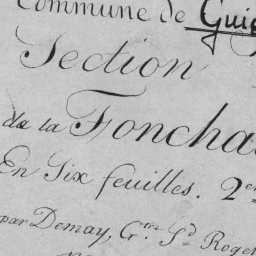 Commune de Guig
Section
de la Foncha
En Six feuilles. 2e
par Demay, Gtre Sd Roger